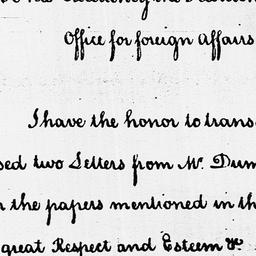 Office for foreign Affairs
I have the honor to trans
sed two Letters from Mr. Dum
the papers mentioned in th
great Respect and Esteem &c